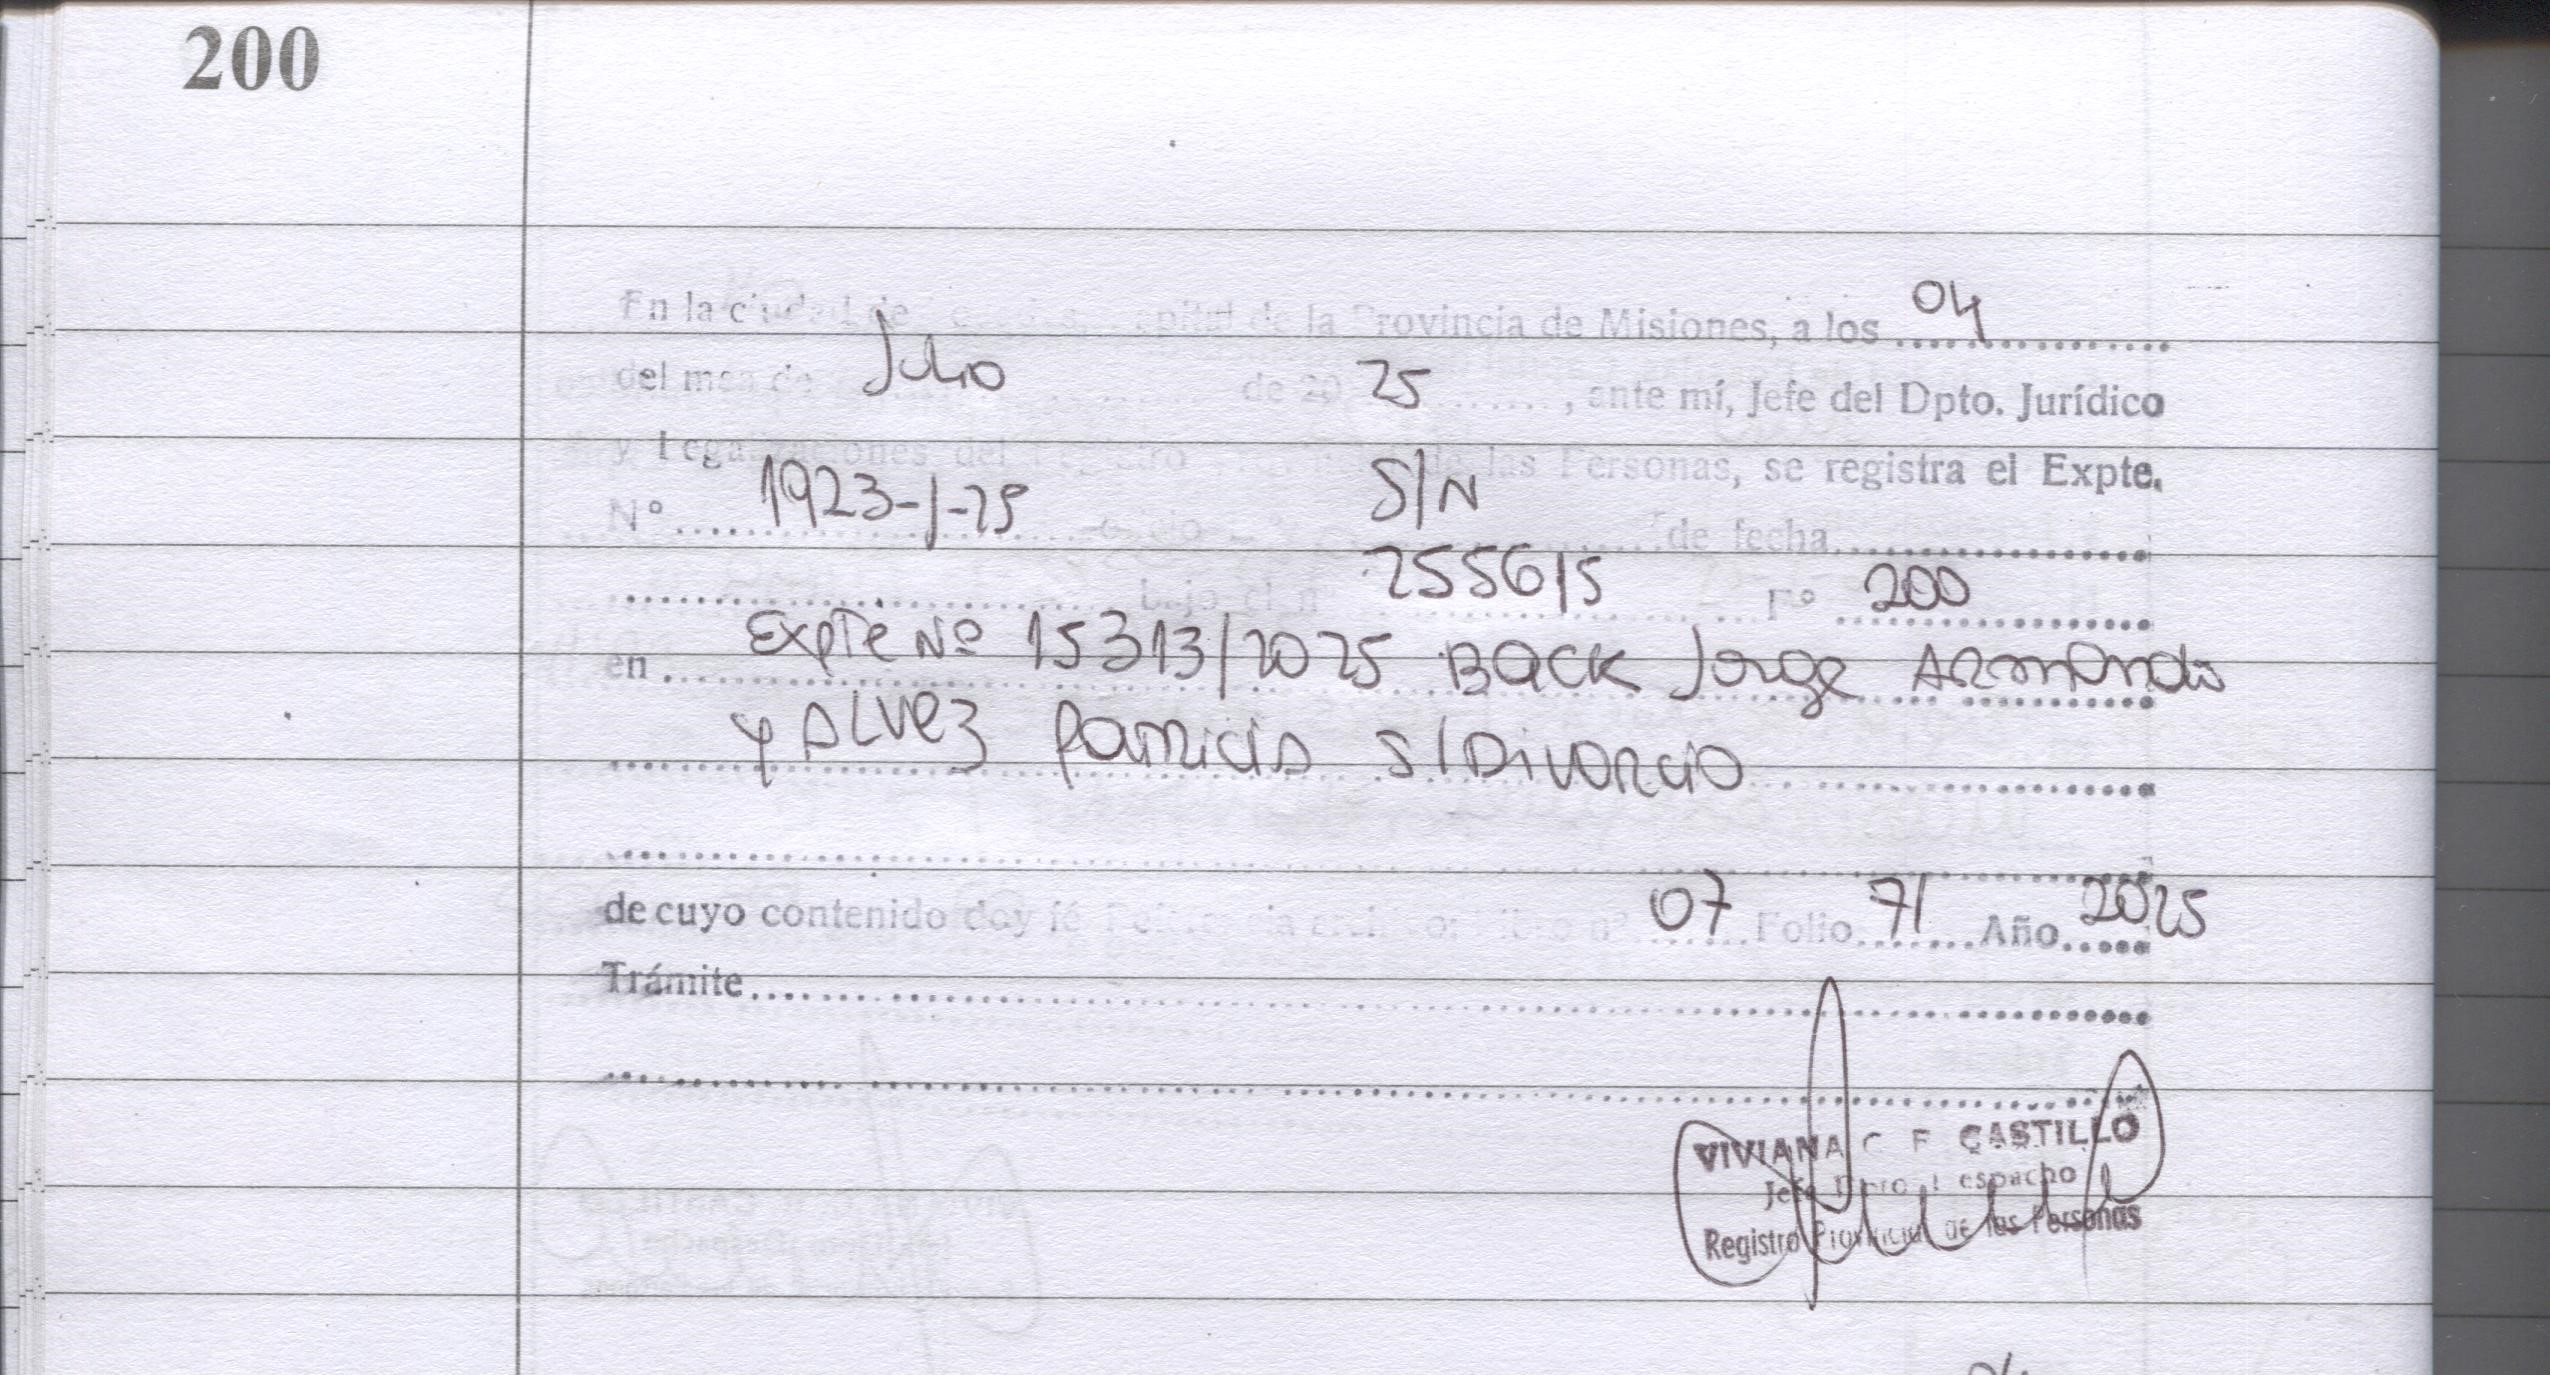 200
En la ciudad de pital de la Provincia de Misiones, a los 04
del mes de Julio de 20 25, ante mí, Jefe del Dpto. Jurídico
y Legalizaciones del Registro de las Personas, se registra el Expte.
Nº 1923-J-25 oficio S/N de fecha
bajo el nº 25561/5 Fº 200
en Expte Nº 15313/2025 BACK Jorge Armando
y ALVEZ Patricia S/Divorcio
de cuyo contenido doy fé 07 Folio 71 Año 2025
Trámite
VIVIANA C F CASTILLO
Jefe Dpto Despacho
Registro Provincial de las Personas